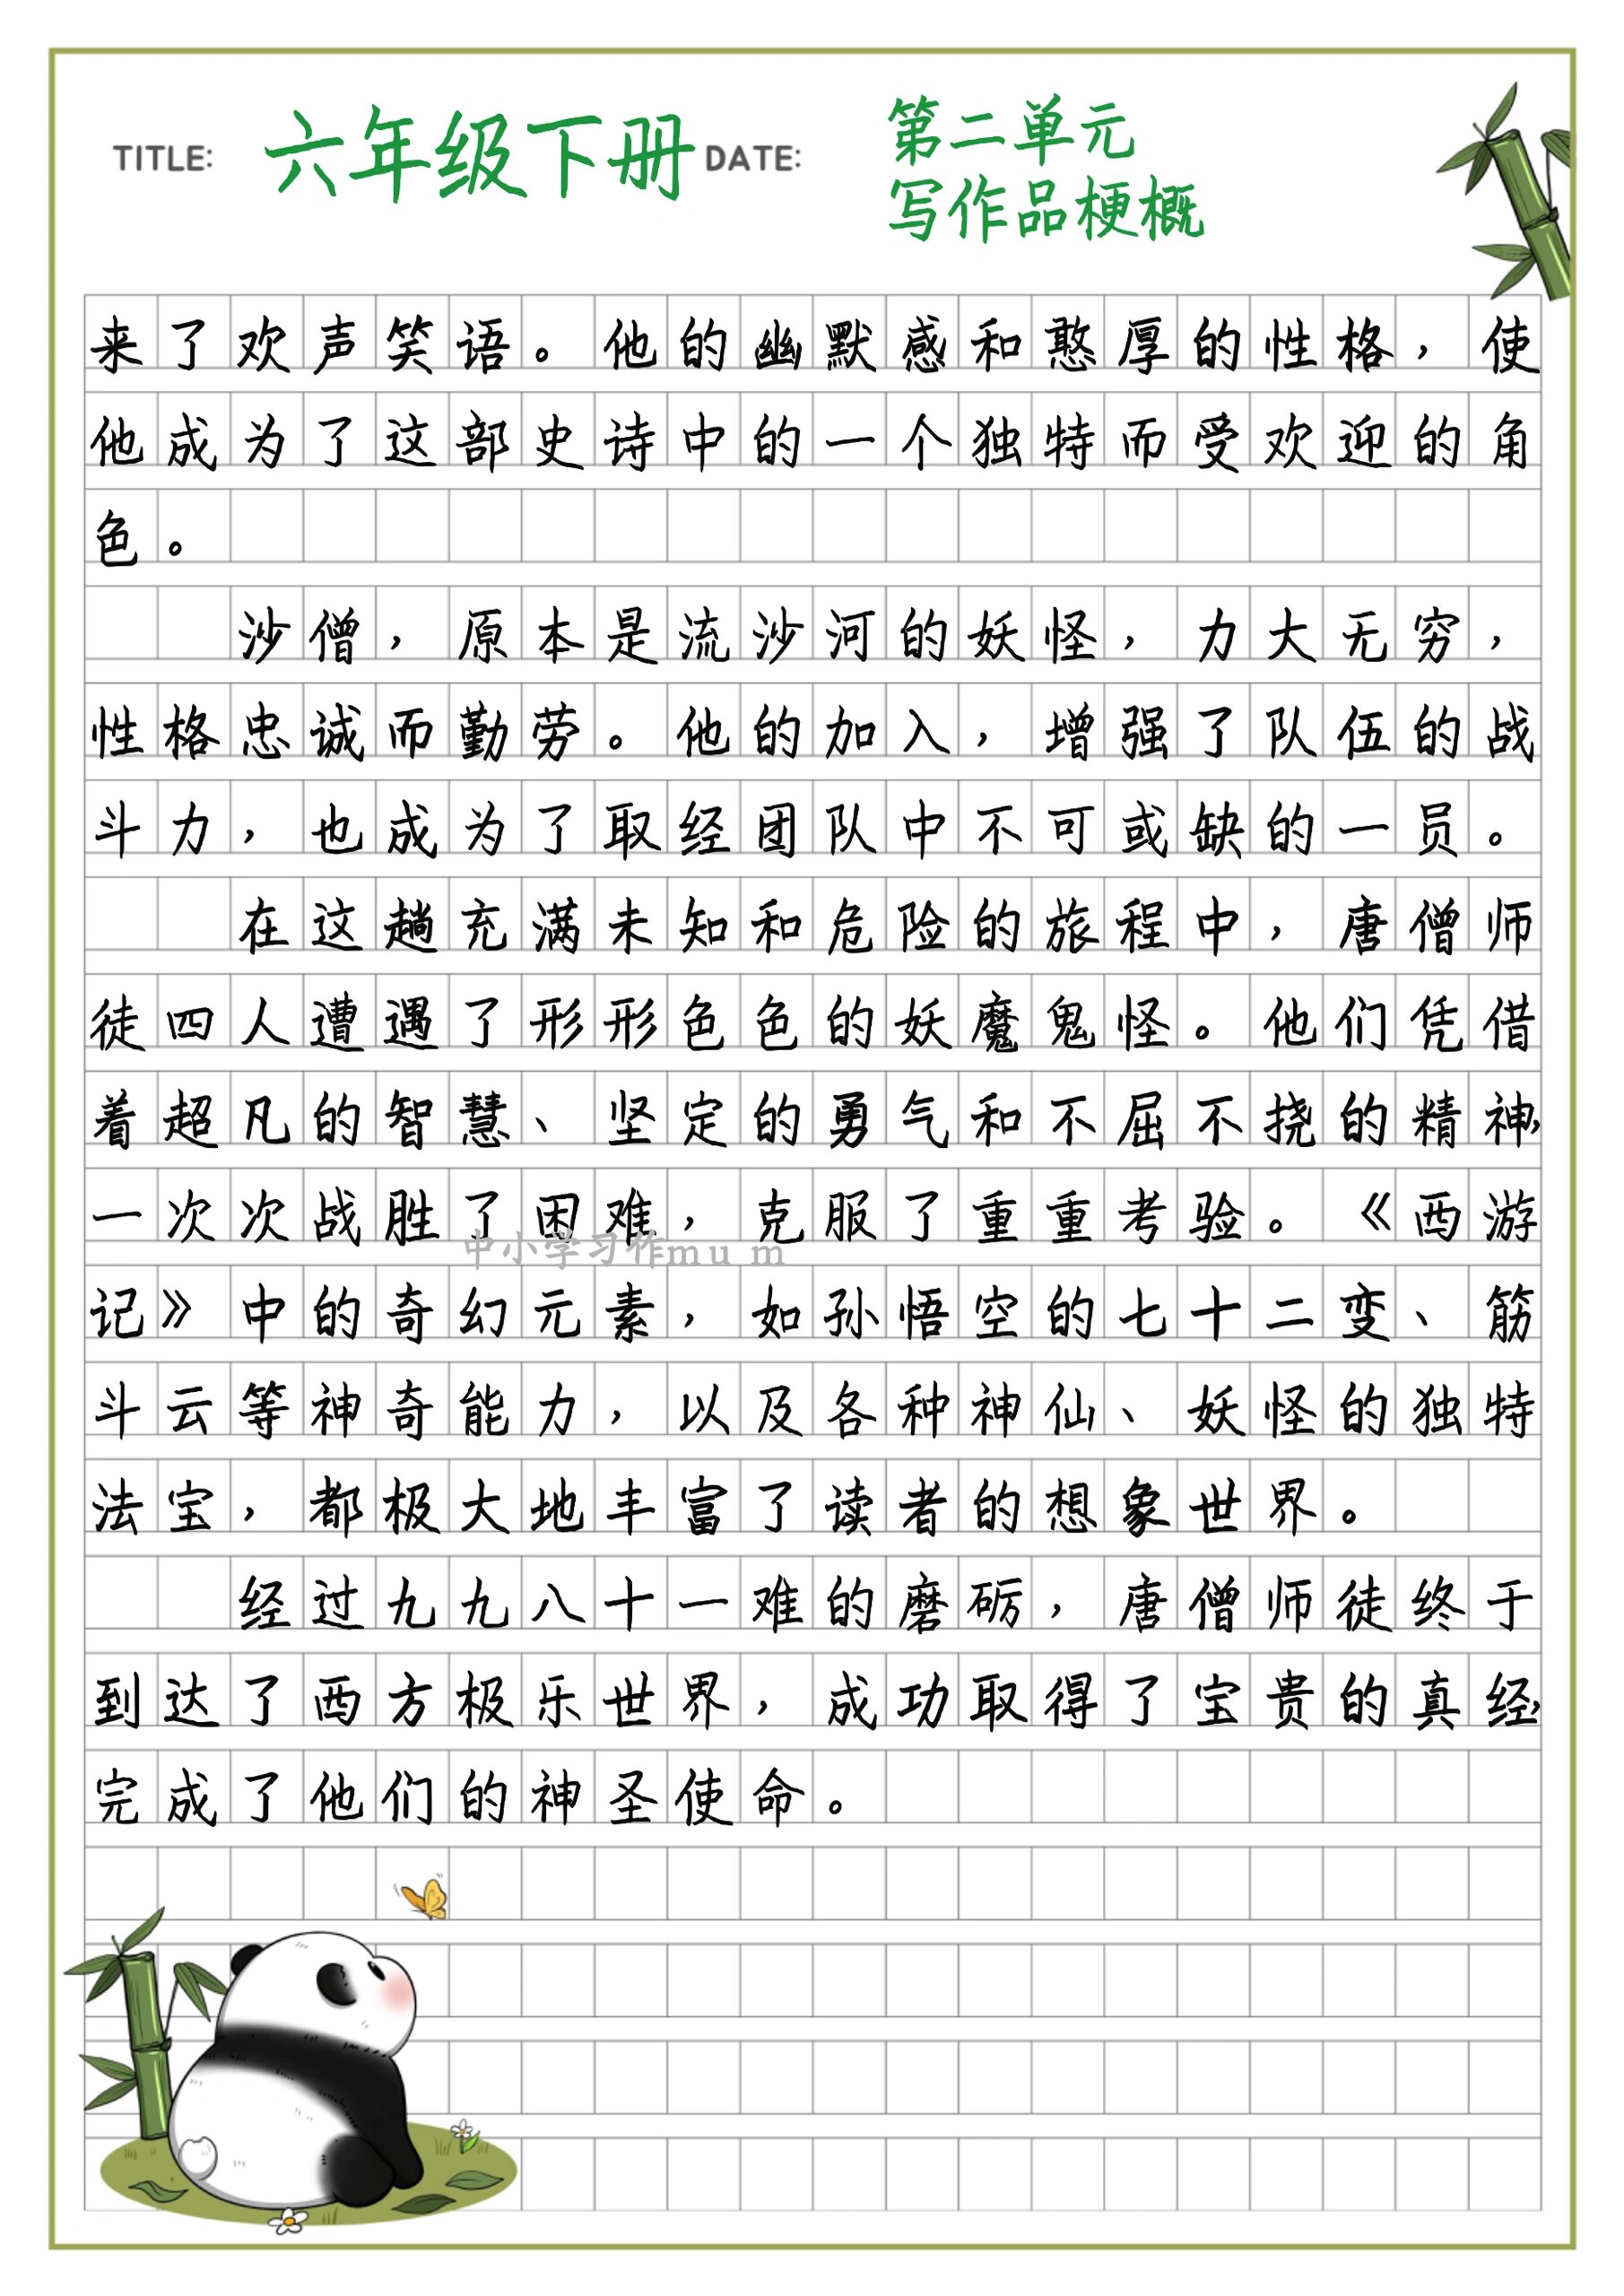 TITLE: 六年级下册 DATE: 第二单元
写作品梗概
来了欢声笑语。他的幽默感和憨厚的性格，使
他成为了这部史诗中的一个独特而受欢迎的角
色。
沙僧，原本是流沙河的妖怪，力大无穷，
性格忠诚而勤劳。他的加入，增强了队伍的战
斗力，也成为了取经团队中不可或缺的一员。
在这趟充满未知和危险的旅程中，唐僧师
徒四人遭遇了形形色色的妖魔鬼怪。他们凭借
着超凡的智慧、坚定的勇气和不屈不挠的精神，
一次次战胜了困难，克服了重重考验。《西游
中小学习作mum
记》中的奇幻元素，如孙悟空的七十二变、筋
斗云等神奇能力，以及各种神仙、妖怪的独特
法宝，都极大地丰富了读者的想象世界。
经过九九八十一难的磨砺，唐僧师徒终于
到达了西方极乐世界，成功取得了宝贵的真经，
完成了他们的神圣使命。